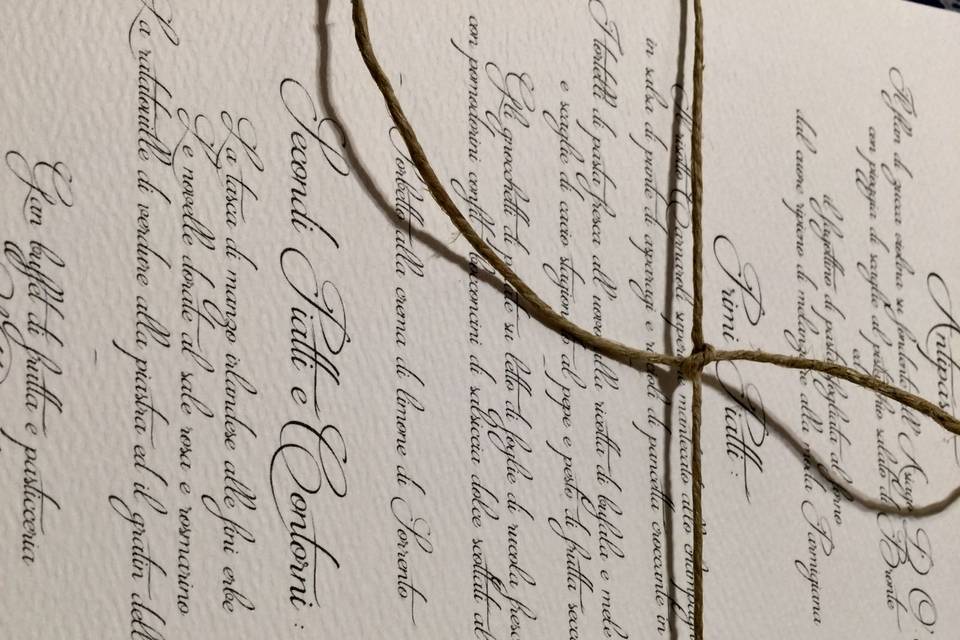 Antipasti
Il flan di zucca violina su fonduta dell'Asiago D.O.
con pioggia di scaglie di pistacchio salato di Bronte
ed
il fagottino di pasta sfogliata al forno
dal cuore ripieno di melanzane alla moda Parmigiana
Primi Piatti :
Il risotto Carnaroli superfino mantecato allo champagne
in salsa di punte di asparagi e riccioli di pancetta croccante in
I tortelli di pasta fresca all'uovo alla ricotta di bufala e mele
e scaglie di cacio stagionato al pepe e pesto di frutta secca
~
Gli gnocchetti di patate su letto di foglie di rucola fresca
con pomodorini confit e bocconcini di salsiccia dolce scottati al
~
Sorbetto alla crema di limone di Sorrento
Secondi Piatti e Contorni :
La tasca di manzo irlandese alle fini erbe
Le novelle dorate al sale rosa e rosmarino
La ratatouille di verdure alla piastra ed il gratin dell
~
Gran buffet di frutta e pasticceria